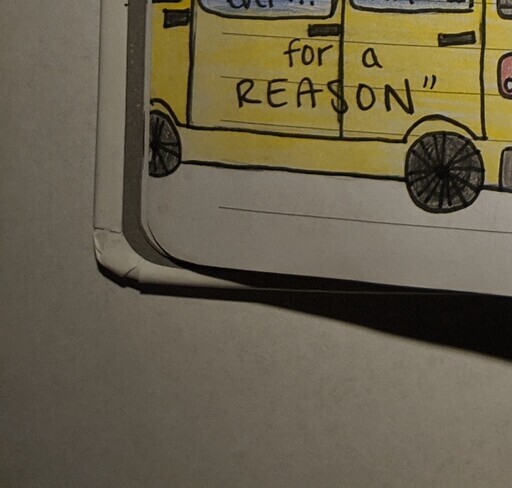 for a
REASON"